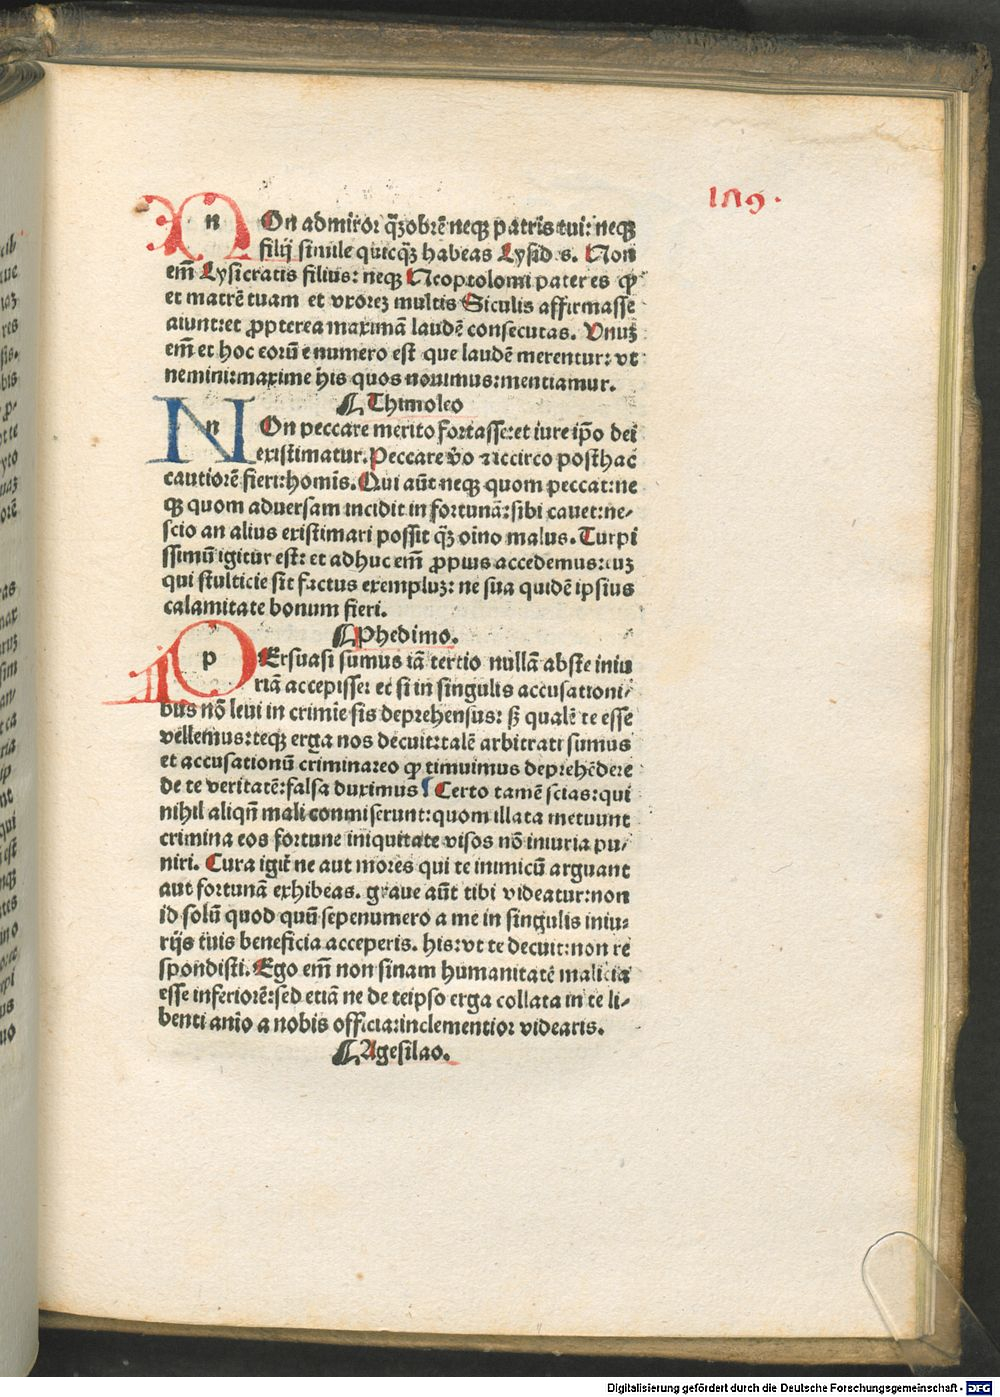 189.
nOn admiror q̃obrē neqꝫ patris tui: neqꝫ
filij simile quicq̃ habeas Lysid s. Non
em̄ Lysicratis filius: neqꝫ Neoptolomi pater es ꝙ
et matrē tuam et vxoreꝫ multis Siculis affirmasse
aiunt: et ꝓpterea maximā laudē consecutas. Vnuꝫ
em̄ et hoc eorū e numero est que laudē merentur: vt
nemini: maxime his quos nouimus: mentiamur.
Thimoleo
nOn peccare merito fortasse: et iure ip̄o dei
existimatur. Peccare v̄o ⁊ iccirco posthac
cautiorē fieri: homīs. Qui aūt neqꝫ quom peccat: ne
qꝫ quom aduersam incidit in fortunā: sibi cauet: ne⸗
scio an alius existimari possit q̃ꝫ oīno malus. Turpi
ssimū igitur est: et adhuc em̄ ꝓpius accedemus: cuꝫ
qui stulticie sit factus exempluꝫ: ne sua quidē ipsius
calamitate bonum fieri.
Phedimo.
pErsuasi sumus iā tertio nullā abste iniu
riā accepisse: et si in singulis accusationi⸗
bus nō leui in crimīe sis deprehensus: sꝫ qualē te esse
vellemus: teqꝫ erga nos decuit: talē arbitrati sumus
et accusationū criminareo ꝙ timuimus deprehēdere
de te veritatē: falsa duximus Certo tamē scias: qui
nihil aliqn̄ mali conmiserunt: quom illata metuunt
crimina eos fortune iniquitate visos nō iniuria pu⸗
niri. Cura igit̄ ne aut mores qui te inimicū arguant
aut fortunā exhibeas. graue aūt tibi videatur: non
id solū quod quū sepenumero a me in singulis iniu⸗
rijs tuis beneficia acceperis. his: vt te decuit: non re
spondisti. Ego em̄ non sinam humanitatē malicia
esse inferiorē: sed etiā ne de teipso erga collata in te li⸗
benti aīo a nobis officia: inclementior videaris.
Agesilao.
Digitalisierung gefördert durch die Deutsche Forschungsgemeinschaft - DFG